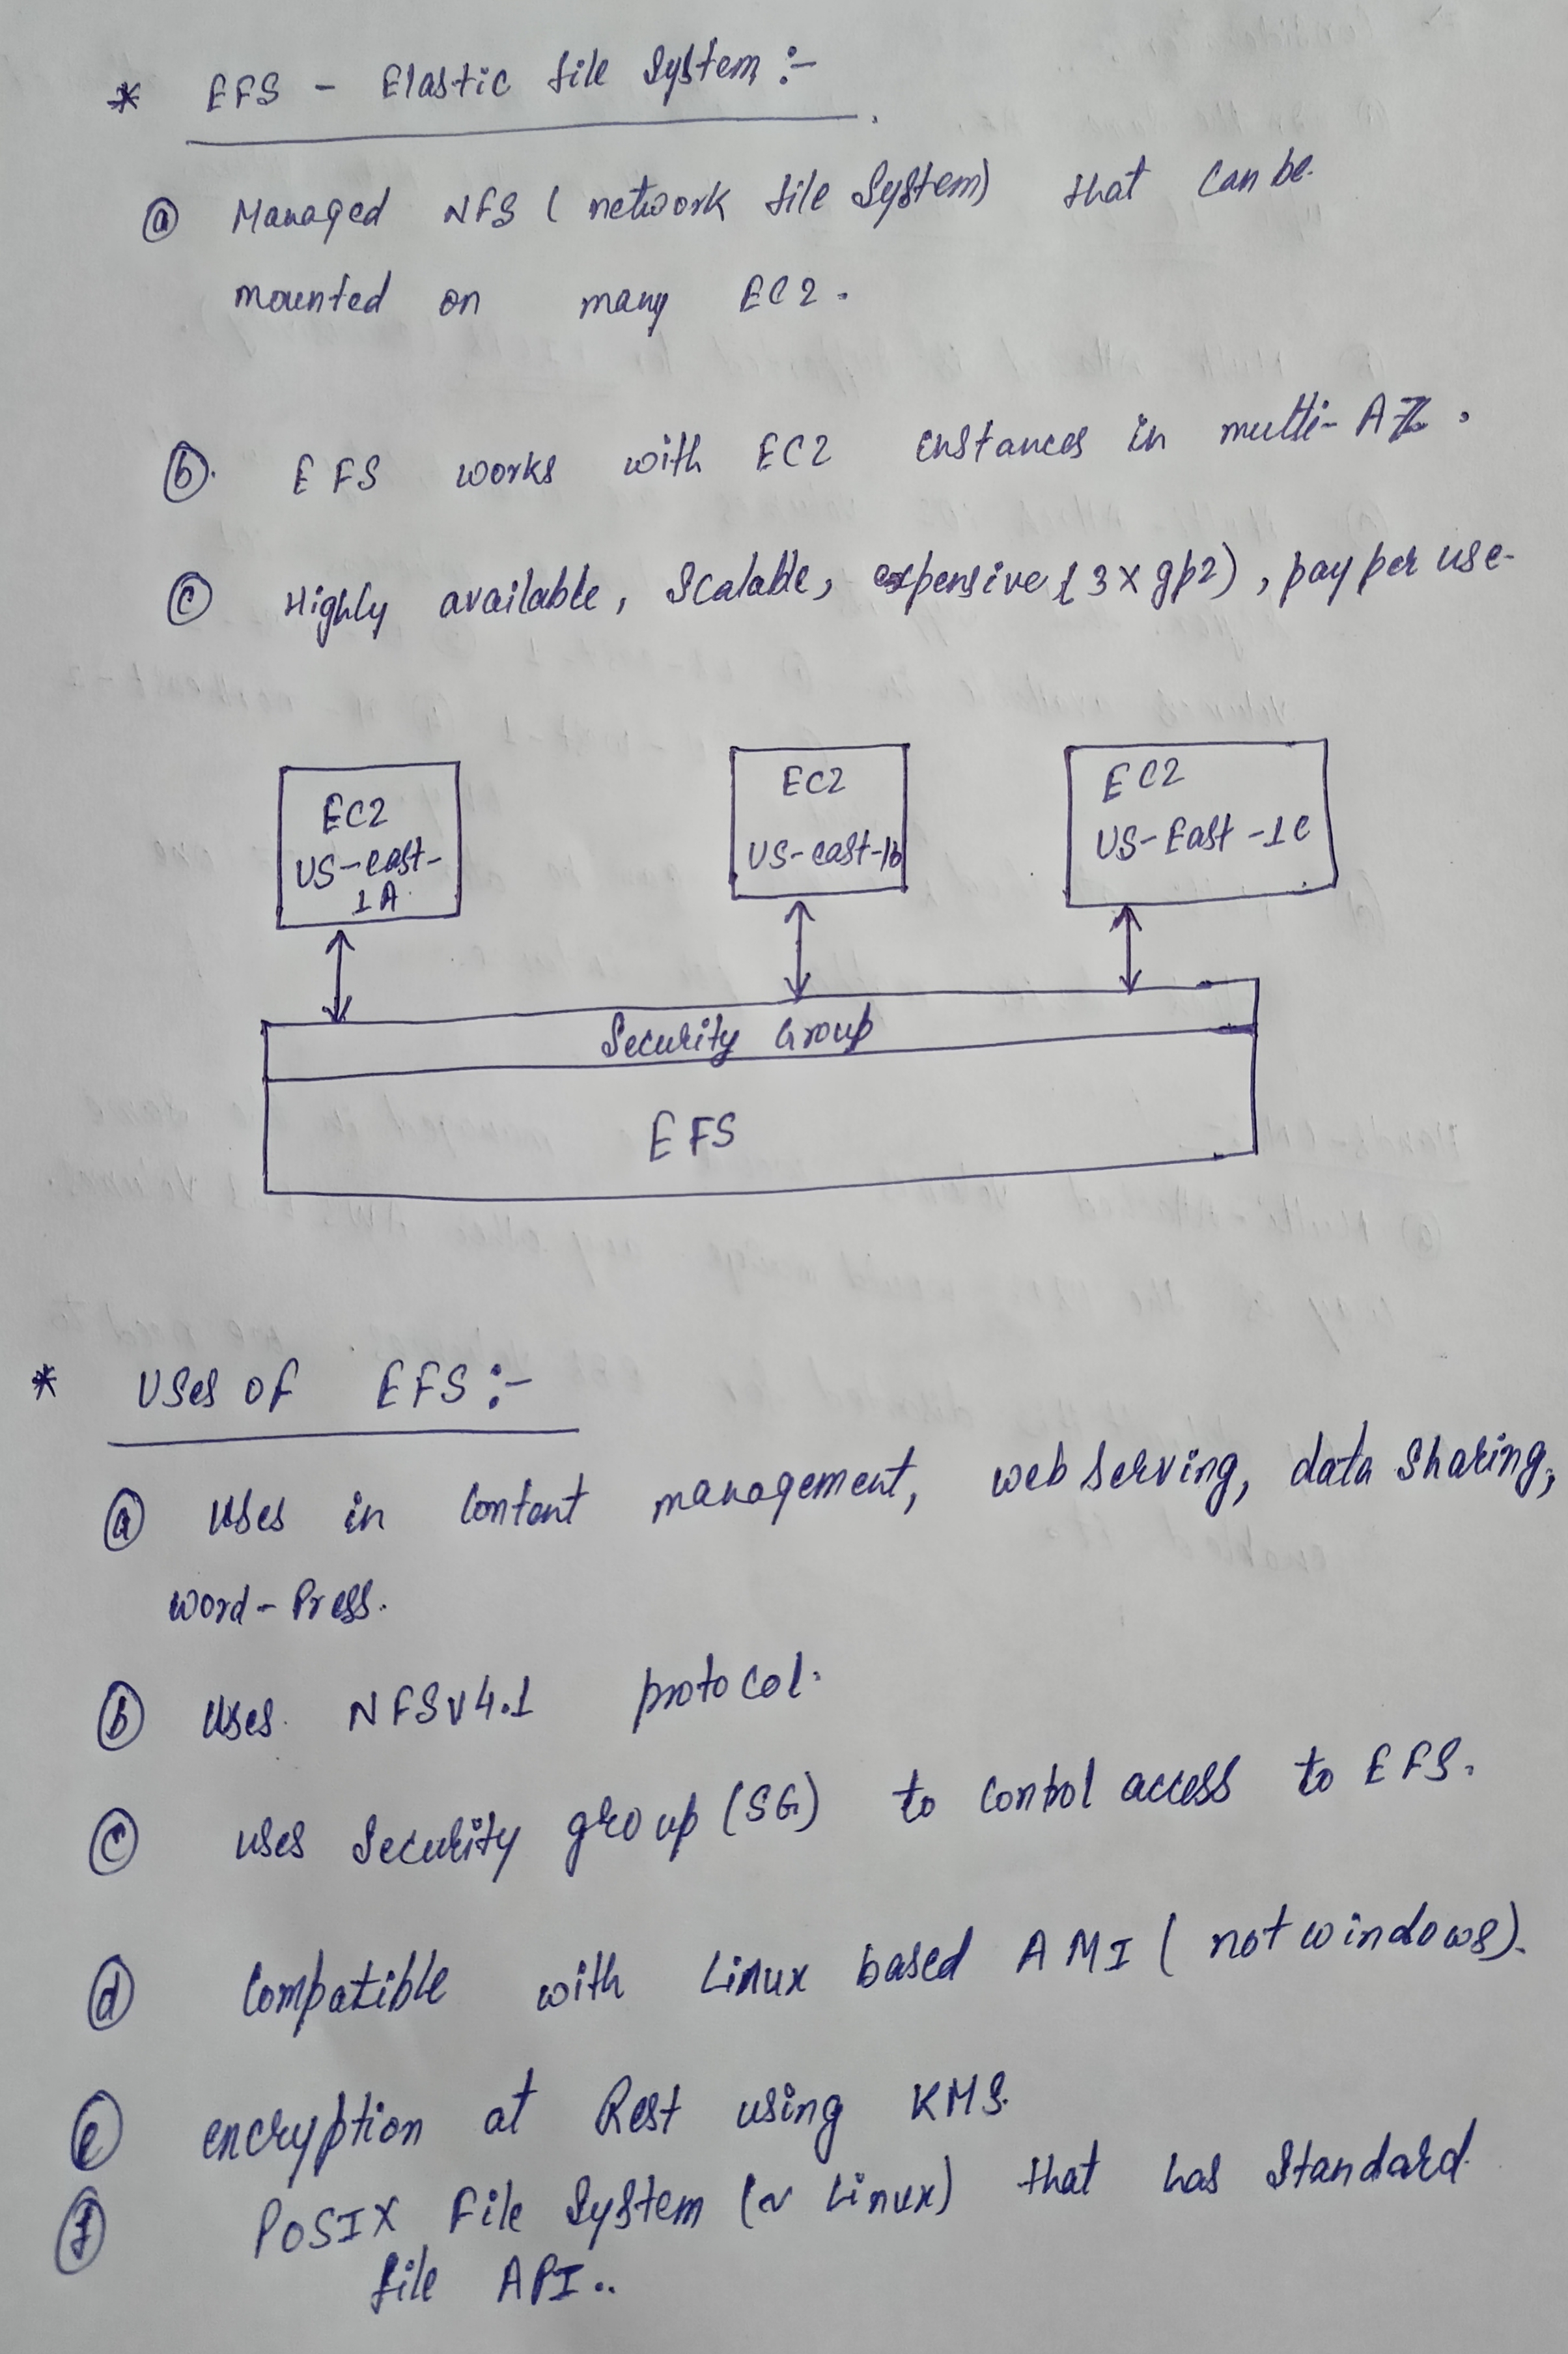 * EFS - Elastic file System :-
ⓐ Managed NFS ( network file System) that can be
mounted on many EC2.
ⓑ. EFS works with EC2 instances in multi-AZ.
ⓒ Highly available, Scalable, expensive (3x gp2), pay per use.
EC2
US-east-
1A
EC2
US-east-1b
EC2
US-East-1C
Security Group
EFS
* Uses of EFS :-
ⓐ Uses in Content management, web serving, data Sharing,
word-Press.
ⓑ Uses NFSv4.1 protocol.
ⓒ uses Security group (SG) to Control access to EFS.
ⓓ Compatible with Linux based AMI ( not windows).
ⓔ encryption at Rest using KMS.
ⓕ POSIX File System (~ Linux) that has Standard
file API..